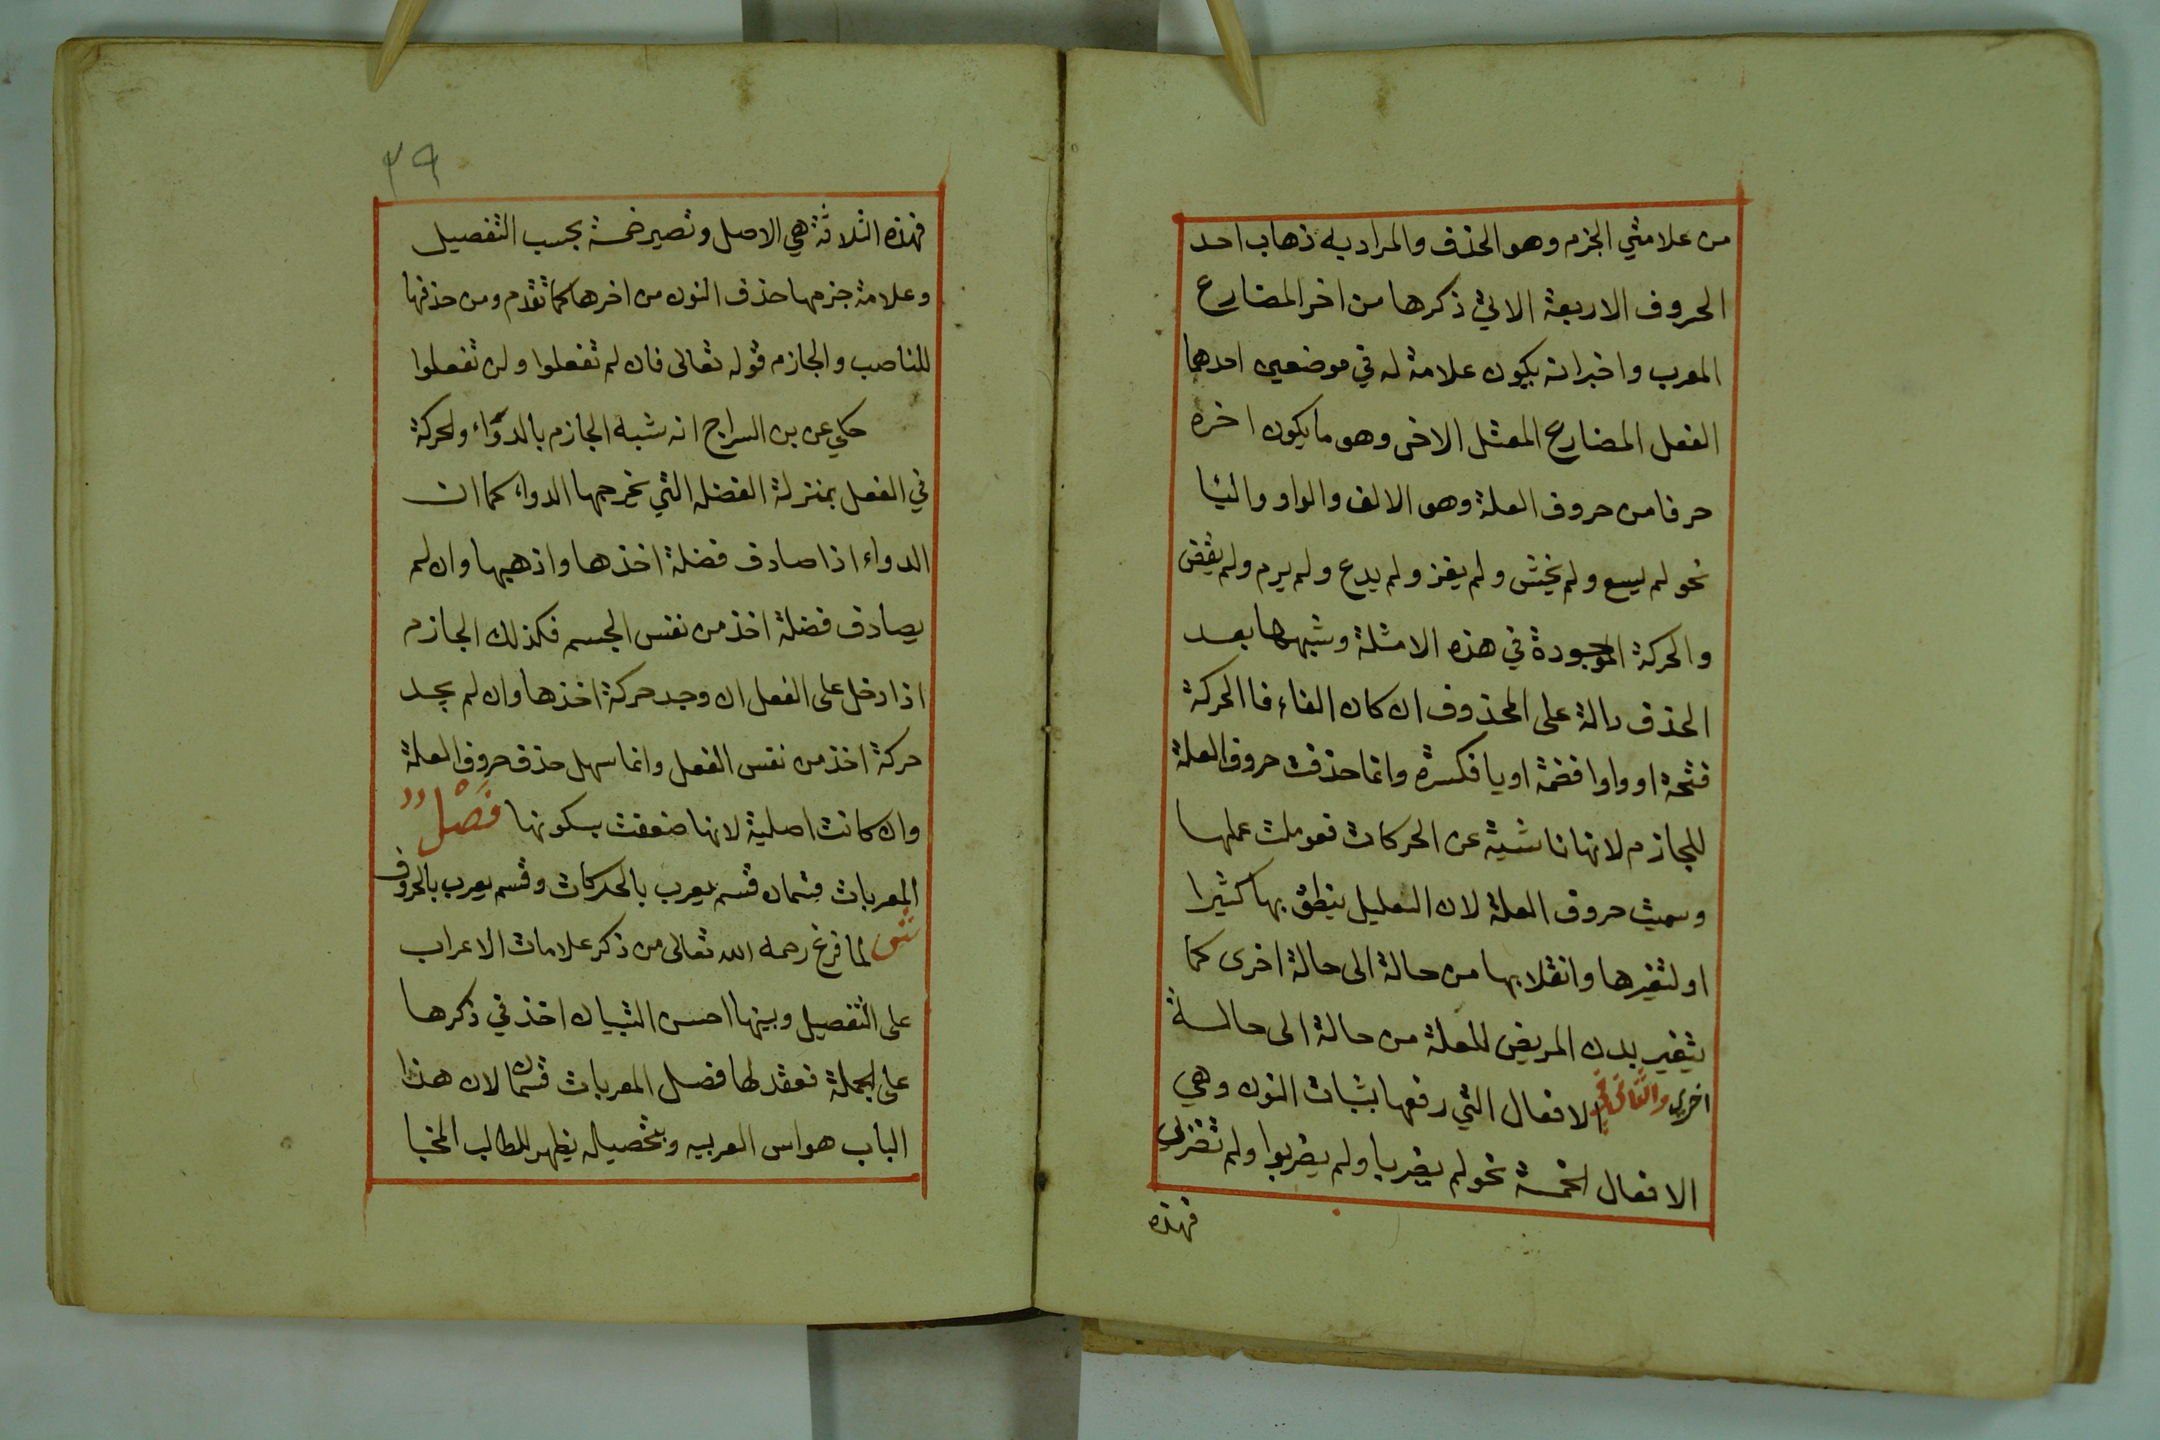 من علامتي الجزم وهو الحذف والمراد به ذهاب احد
الحروف الاربعة الاتي ذكرها من اخر المضارع
المعرب واخبر انه يكون علامة له في موضعين احدهما
الفعل المضارع المعتل الاخر وهو ما يكون اخره
حرفا من حروف العلة وهو الالف والواو واليا
نحو لم يسع ولم يخش ولم يغز ولم يدع ولم يرم ولم يقض
والحركة الموجودة في هذه الامثلة وشبهها بعد
الحذف دالة على المحذوف ان كان الفاء فا الحركة
فتحة او واوا فضمة او يا فكسرة وانما حذفت حروف العلة
للجازم لانها ناشية عن الحركات فعوملت عملها
وسميت حروف العلة لان التعليل ينطق بها كثيرا
او لتغيرها وانقلابها من حالة الى حالة اخرى كما
يتغير بدن المريض للعلة من حالة الى حالة
اخرى والثاني في الافعال التي رفعها بثبات النون وهي
الافعال الخمسة نحو لم يضربا ولم يضربوا ولم تضربي
فهذه
٢٩
فهذه الثلاثة هي الاصل وتصير خمسة بحسب التفصيل
وعلامة جزمها حذف النون من اخرها كما تقدم ومن حذفها
للناصب والجازم قوله تعالى فان لم تفعلوا ولن تفعلوا
حكي عن بن السراج انه شبه الجازم بالدواء والحركة
في الفعل بمنزلة الفضله التي يخرجها الدواء كما ان
الدواء اذا صادف فضلة اخذها واذهبها وان لم
يصادف فضلة اخذ من نفس الجسم فكذلك الجازم
اذا دخل على الفعل ان وجد حركة اخذها وان لم يجد
حركة اخذ من نفس الفعل وانما سهل حذف حروف العلة
وان كانت اصلية لانها ضعفت بسكونها فصل
المعربات قسمان قسم يعرب بالحركات وقسم يعرب بالحروف
ش لما فرغ رحمه الله تعالى من ذكر علامات الاعراب
على التفصيل وبينها احسن التبيان اخذ في ذكرها
على الجملة فعقد لها فصل المعربات قسمان لان هذا
الباب هو اس العربيه وبتحصيله يظهر للطالب المخبا